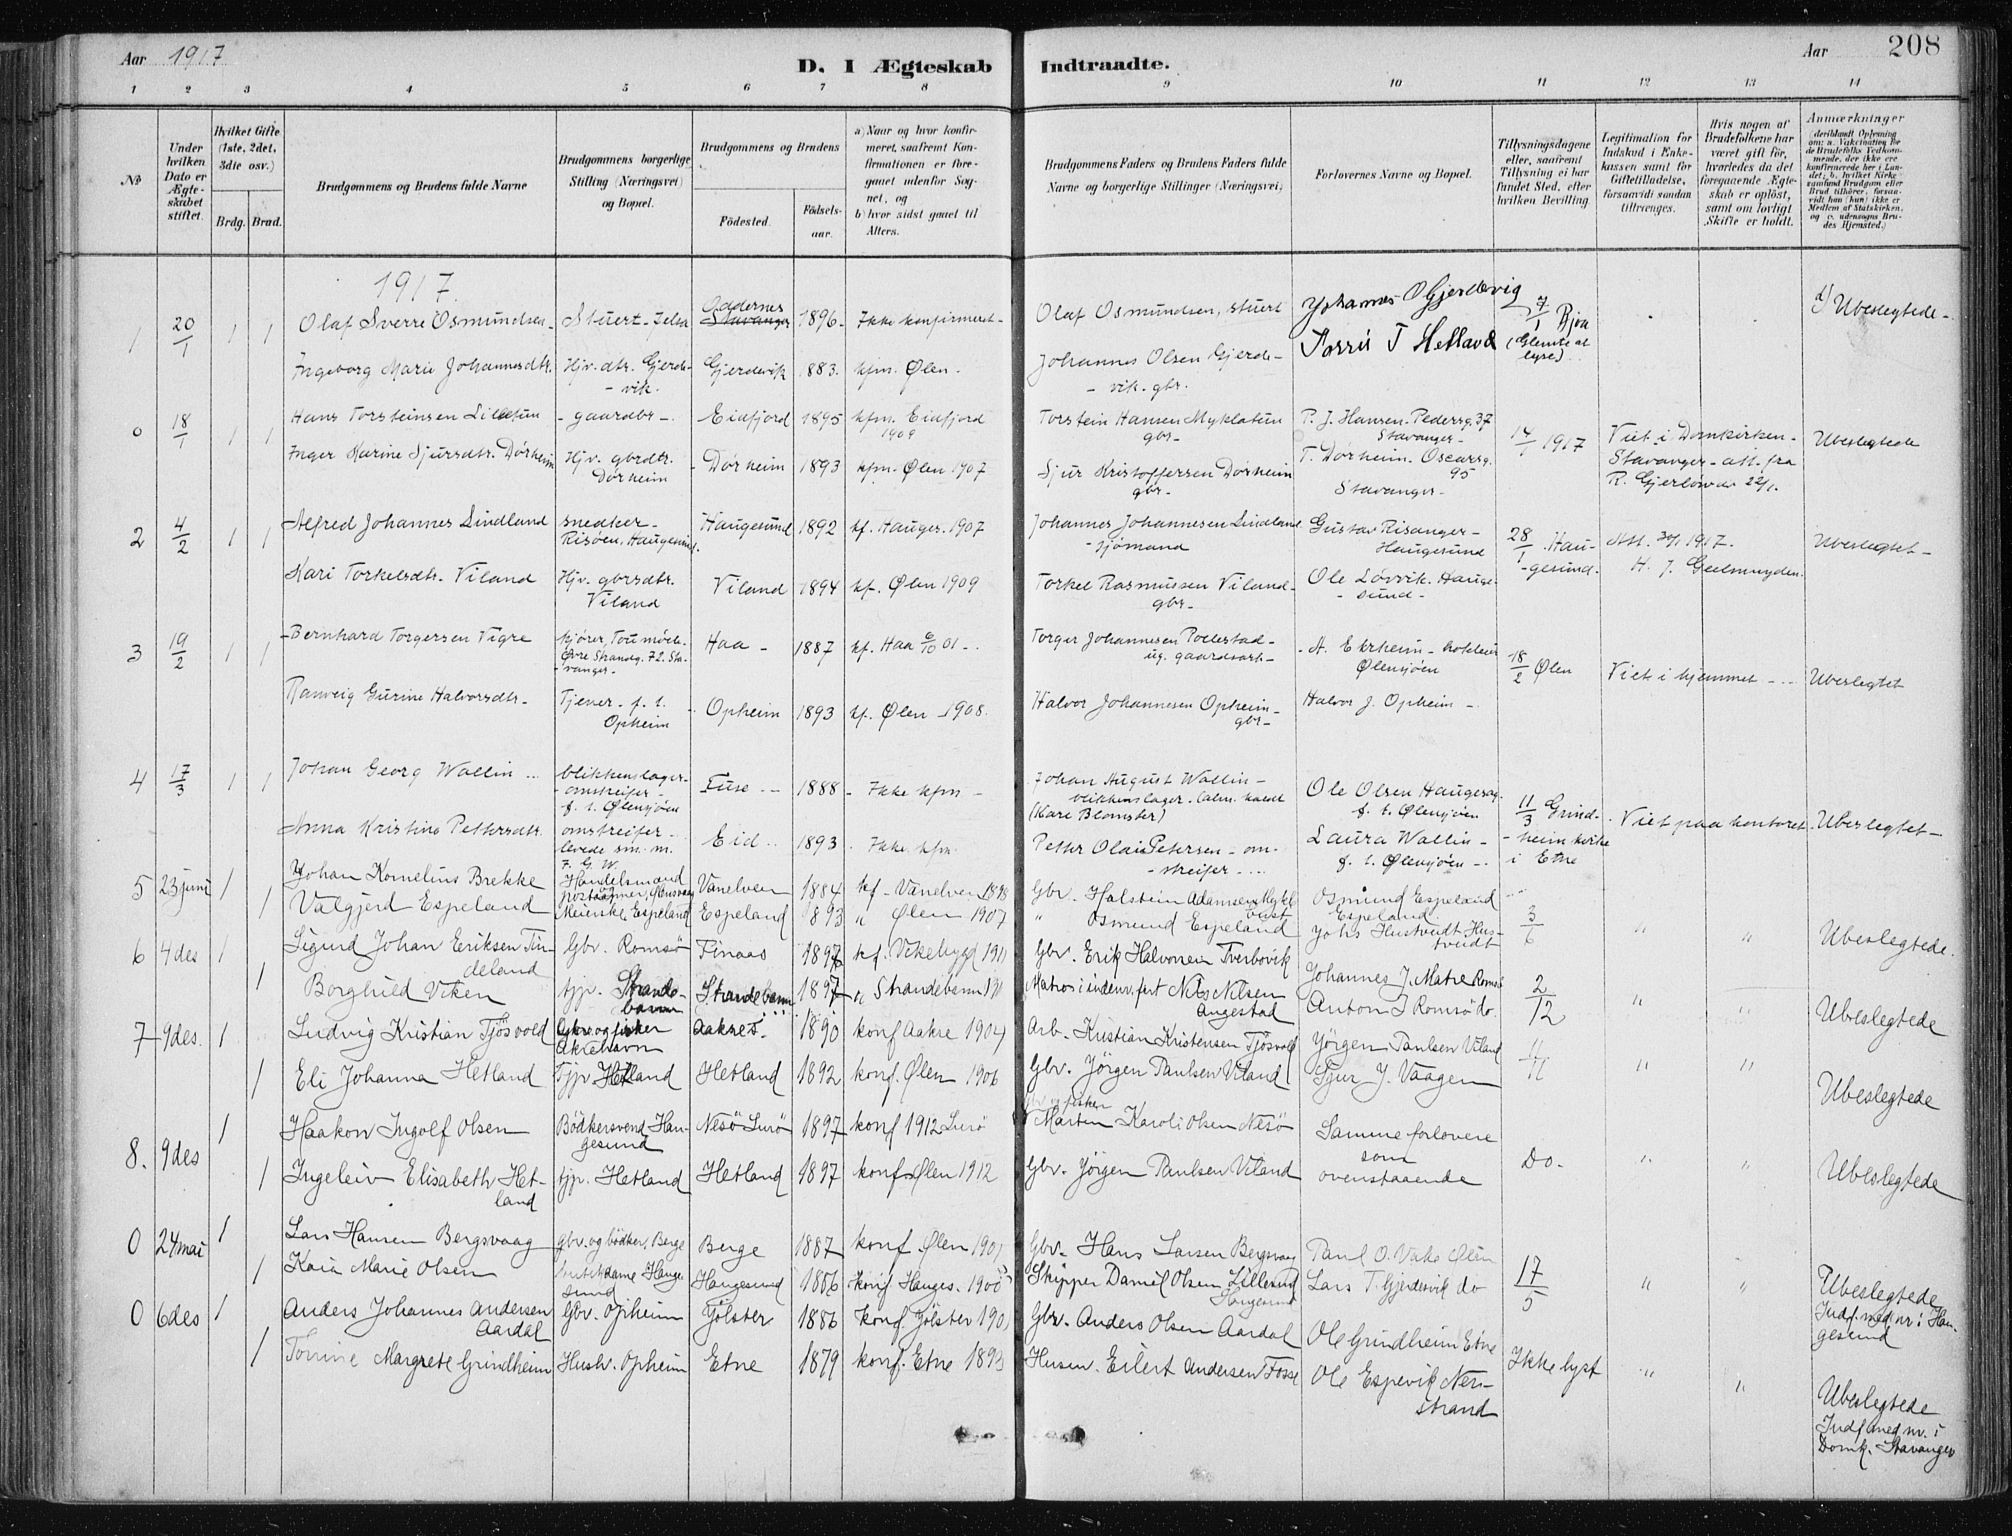 Aar 1917
D. I Ægteskab Indtraadte.
Aar 208
1 2 3 4 5 6 7 8 9 10 11 12 13 14
No
Under hvilken Dato er Ægteskabet stiftet.
Hvilket Gifte (1ste, 2det, 3die osv.)
Brdg. Brud.
Brudgommens og Brudens fulde Navne
Brudgommens borgerlige Stilling (Næringsvei) og Bopæl.
Brudgommens og Brudens
Födested.
Födselsaar.
a) Naar og hvor konfirmeret, saafremt Konfirmationen er foregaaet udenfor Sognet, og
b) hvor sidst gaaet til Alters.
Brudgommens Faders og Brudens Faders fulde Navne og borgerlige Stillinger (Næringsvei)
Forlovernes Navne og Bopæl.
Tillysningsdagene eller, saafremt Tillysning ei har fundet Sted, efter hvilken Bevilling
Legitimation for Indskud i Enkekassen samt for Giftetilladelse, forsaavidt saadan tiltrænges.
Hvis nogen af Brudefolkene har været gift för, hvorledes da det foregaaende Ægteskab er oplöst, samt om lovligt Skifte er holdt.
Anmærkninger (deriblandt Oplysning om: a. Vakcination for de Brudefolks Vedkommende, der ikke ere konfirmerede her i Landet; b. hvilket Kirkesamfund Brudgom eller Brud tilhörer, forsaavidt han (hun) ikke er Medlem af Statskirken, og c. udensogns Brudes Hjemsted.)
1917.
1 20/1 1 1 Olaf Sverre Osmundsen - Stuert - Jelsa Oddernes Stavanger 1896 - Ikke konfirmeret - Olaf Osmundsen, stuert Johannes O Gjerdevig 7/1 Bjoa d) Ubeslegtede -
Ingeborg Marie Johannesdtr. Hjv. dtr. Gjerde- Gjerdevik 1883. kfm. Ølen. Johannes Olsen Gjerde- T Hetland (Glemte at
- vik. - vik. gbr. lyse)
0 18/1 1 1 Hans Torsteinsen Lilletun - gaardbr - Eidfjord 1895 kfm. Eidfjord 1909 Torstein Hansen Myklatun gbr - P. J. Hansen - Pedersg. 37 Stavanger - 14/1 1917 Viet i Domkirken - Ubeslegtede
Inger Karine Sjursdtr. Dørheim Hjv. gbrdtr. Dørheim - Dørheim 1893 kfm. Ølen 1907 Sjur Kristoffersen Dørheim gbr - T. Dørheim - Oscarsg. 95 Stavanger - Stavanger - att. fra R. Gjerløw 22/1.
2 4/2 1 1 Alfred Johannes Lindland snedker - Risøen, Haugesund. Haugesund 1892 kf. Hauges. 1907 Johannes Johannesen Lindland - sjømand Gustav Risanger - Haugesund 28/1 Hau- Att. 30/1 1917. Ubeslegtet -
Kari Torkelsdtr. Viland Hjv. gbrsdtr. Viland Viland 1894 kf. Ølen 1909 Torkel Rasmussen Viland - gbr - Ole Løvvik. Hauge- sund - - gesund. H. J. Geelmuyden.
3 19/2 1 1 - Bernhard Torgersen Vigre kjører, Tou mølle Øvre Strandg. 72. Sta- vanger - Haa - 1887 kf. Haa 6/10 01 - Torger Johannesen - ug. gaardsarb - - A. Ekrheim - hoteleier Ølensjøen 18/2 Ølen Viet i hjemmet - Ubeslegtet
Ranveig Gurine Halvorsdtr - Tjener - f. t. Opheim - Opheim 1893 kf. Ølen - 1908. Halvor Johannesen Opheim - gbr - Halvor J. Opheim -
4 17/3 1 1 Johan Georg Wallin ... blikkenslager - - omstreifer - f. t. Ølensjøen Fuse - - 1888 - Ikke kfm - Johan August Wallin - blikkenslager - (Kare Blomster) Ole Olsen Haugesag f. t. Ølensjøen 11/3 Grind- Viet paa kontoret. Ubeslegtet -
Anna Kristina Pettersdtr. omstreifer - levede sm. m. J. G. W. Eid - 1893. Ikke kfm. Petter Olai Petersen - om- - streifer - Laura Wallin - f. t. Ølensjøen - - heim kirke i Etne
5 23 juni 1 Johan Kornelius Brekke Handelsmand Vanelven 1884 kf - Vanelven 1898 Gbr. Halstein Adamsen Mykle- bust Osmund Espeland 3/6 " " Ubeslegtede.
1 Valgjerd Espeland Meierske Espeland Espeland 1893 " Ølen 1907 " Osmund Espeland Espeland. Johs Hustvedt Hus- tvedt
6 4 des 1 Sigurd Johan Eriksen Tin- deland Gbr. Romsø Finaas 1897 kf. Vikebygd 1911 Gbr. Erik Halvorsen Tverbovik Johannes J. Matre Romsø 2/12 " " Ubeslegtede
1 Borghild Viken tjp. Strande- barm Strandebarm 1897 " Strandebarm Matros i indenr. fart Nils Nilsen Angestad Anton J Romsø do.
7 9 des. 1 Ludvig Kristian Tjösvold Gbr. og fisker Akrehavn Aakre s. 1890 konf Aakre 1904 Arb. Kristian Kristensen Tjösvold Jörgen Paulsen Viland 11/11 " " Ubeslegtede
1 Eli Johanna Hetland Tjp Hetland Hetland 1892 konf. Ølen 1906 Gbr. Jörgen Paulsen Viland Sjur J. Vaagen
8. 9 des 1 Haakon Ingolf Olsen Bödkersvend Hau- gesund Nesö Lurö 1897 konf 1912 Lurö fisker Morten Karoli Olsen Nesö Samme forlovere som ovenstaaende Do - " " Ubeslegtede
1 Ingeleiv Elisabeth Het- land tjp. Hetland Hetland 1897 konf Ølen 1912 Gbr. Jörgen Paulsen Viland
0 24 mai 1 Lars Hansen Bergsvaag gbr. og bödker, Berge Berge 1887 konf Ølen 1901 Gbr. Hans Larsen Bergsvaag Paul O. Vake Ølen 17/5 " " Ubeslegtede Indf. med nr. i Hau- gesund
1 Kaia Marie Olsen Butikdame Hauge- sund Haugesund 1886 konf Hauges. 1900 Skipper Daniel Olsen Lillesund Haugesund Lars T. Gjerdevik do
0 6 des 1 Anders Johannes Andersen Aardal Gbr. Opheim Jölster 1886 konf Jölster 1901 Gbr. Anders Olsen Aardal Ole Grindheim Etne Ikke lyst " " Ubeslegtede Indf. med nr. i Domk. Stavanger
1 Tomine Margrete Grindheim Hush. Opheim Etne 1879 konf. Etne 1893 Husm. Eilert Andersen Fosse Ole Espevik Ners- strand